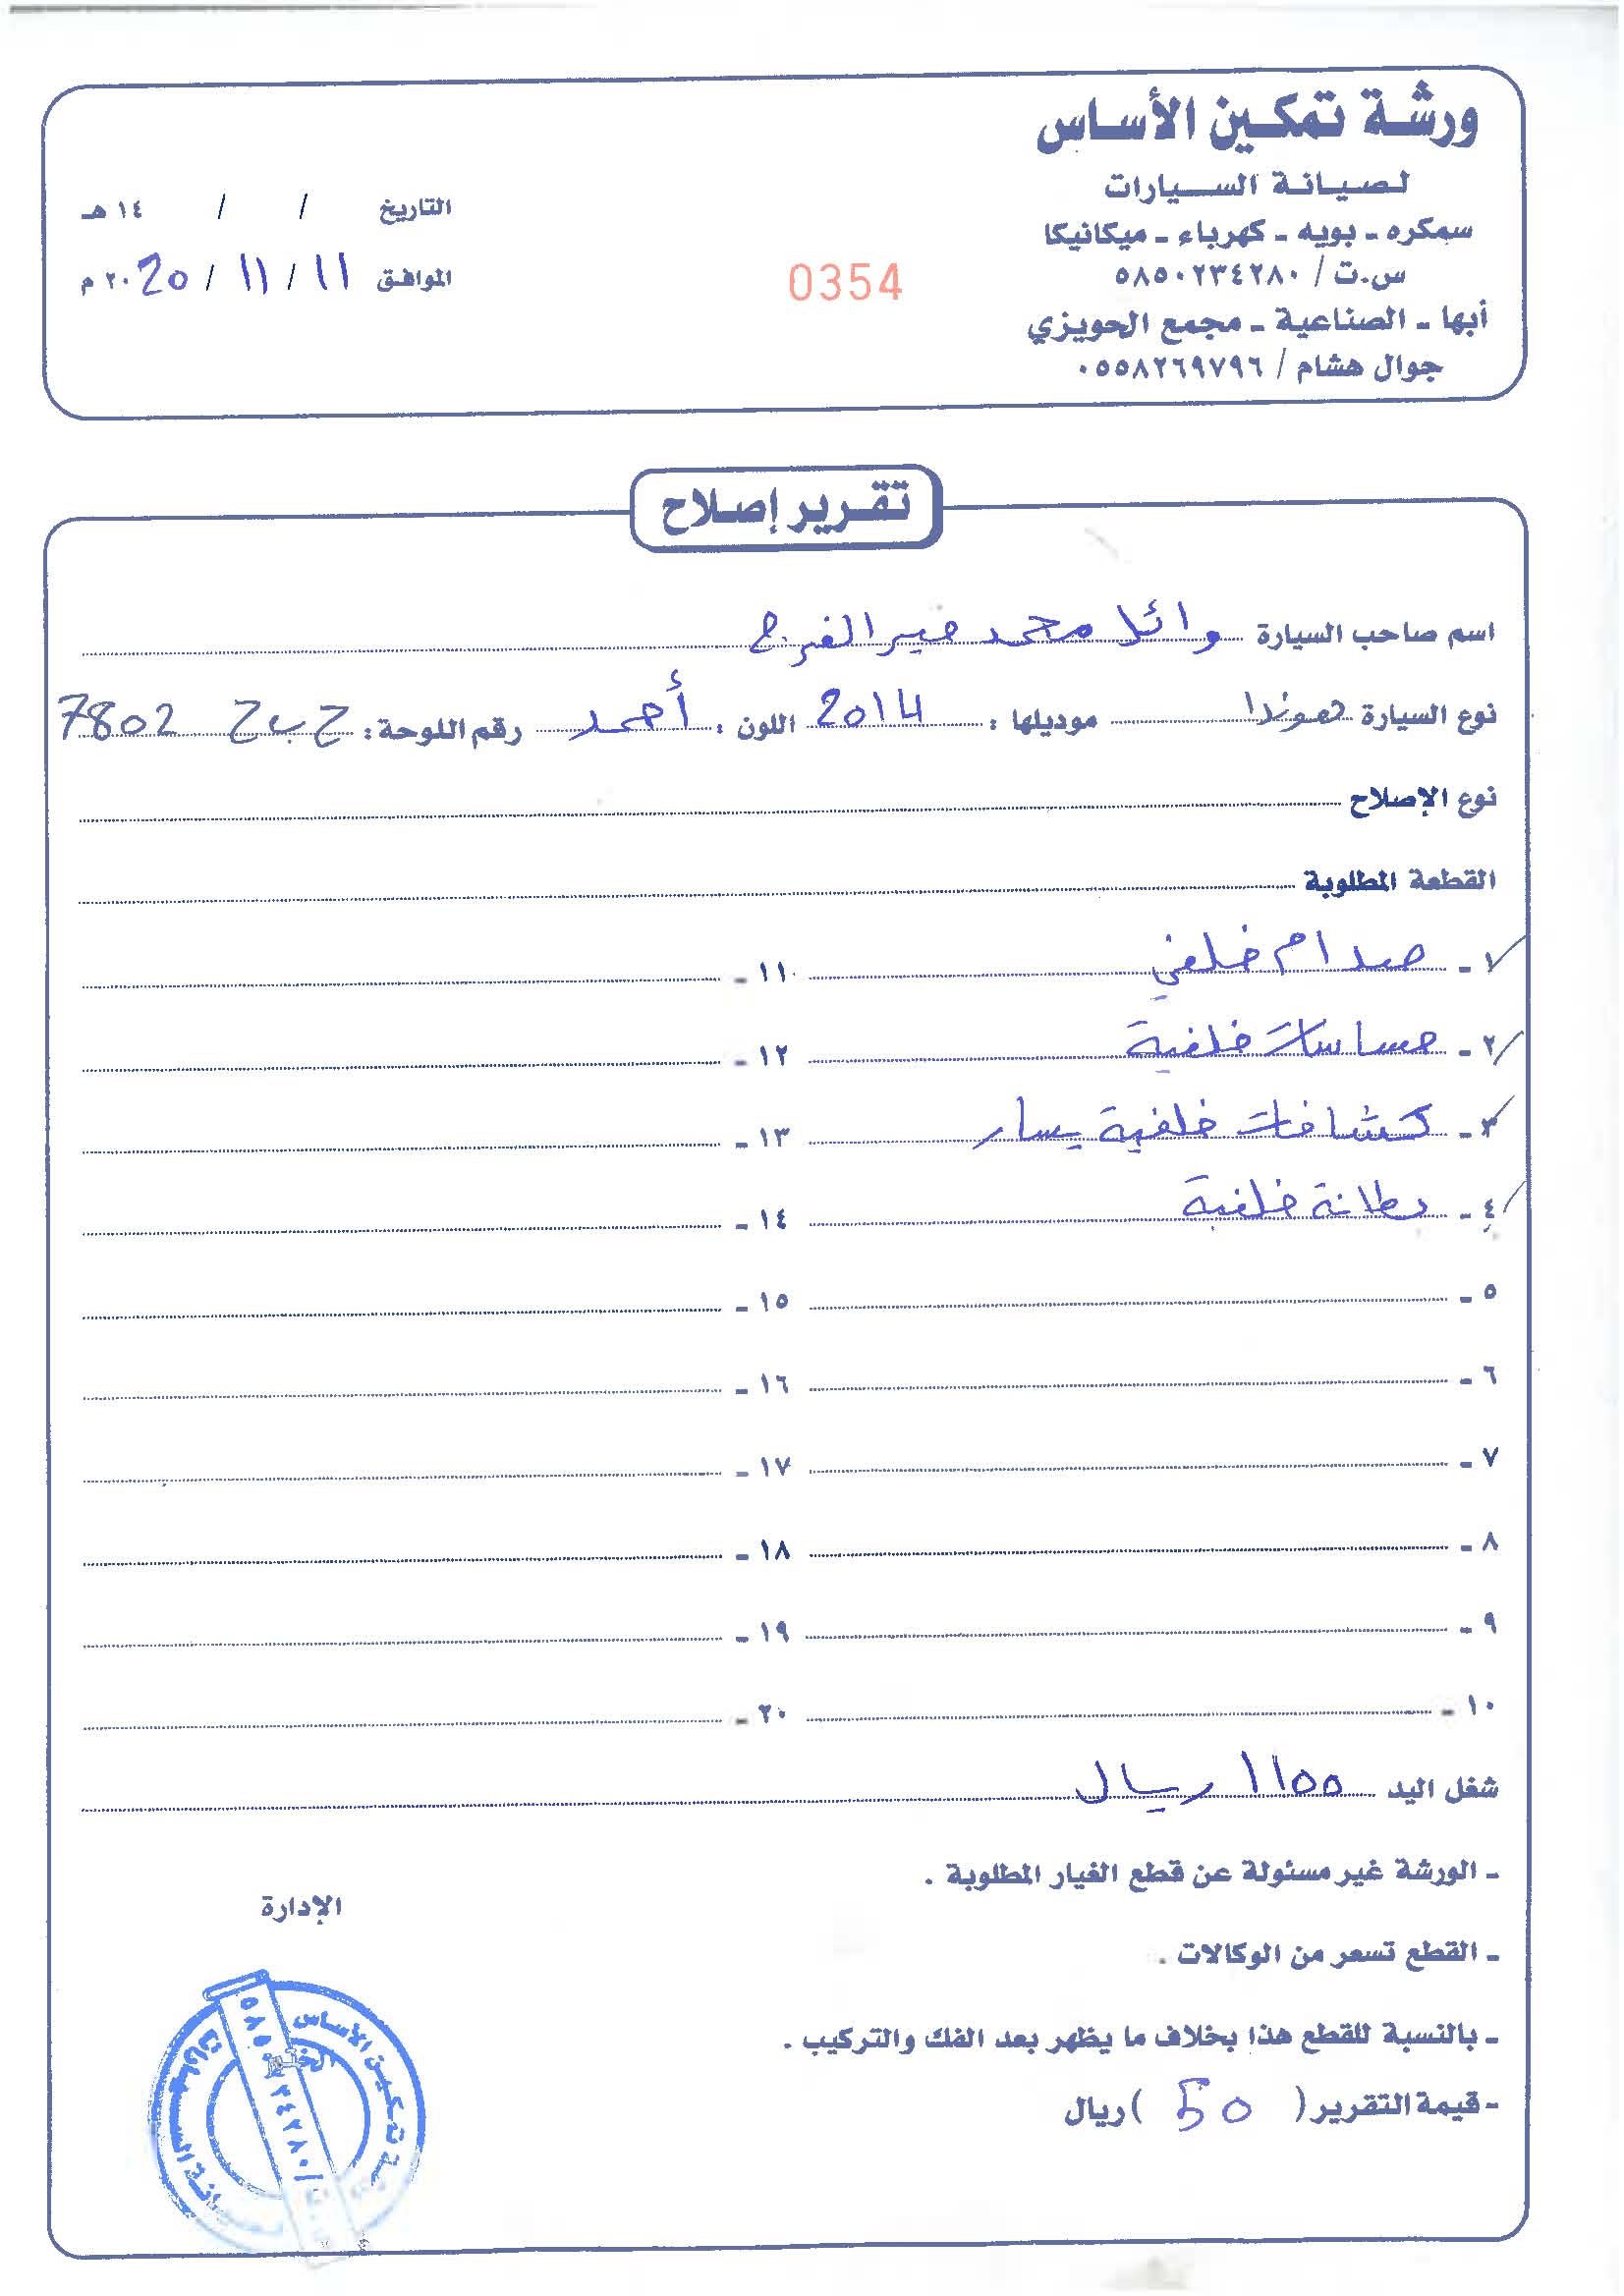 ورشة تمكين الأساس
لصيانة السيارات
سمكره - بويه - كهرباء - ميكانيكا
س.ت / ٥٨٥٠٢٣٤٢٨٠
أبها - الصناعية - مجمع الحويزي
جوال هشام / ٠٥٥٨٢٦٩٧٩٦
0354
التاريخ / / ١٤ هـ
الموافق 11 / 11 / ٢٠20 م
تقرير إصلاح
اسم صاحب السيارة وائل محمد الفرج
نوع السيارة هوندا موديلها : 2014 اللون : أحمر رقم اللوحة : ح ب ح 7802
نوع الإصلاح
القطعة المطلوبة
١ - صدام خلفي
٢ - حساسات خلفية
٣ - كشافات خلفية يسار
٤ - بطانة خلفية
٥ -
٦ -
٧ -
٨ -
٩ -
١٠ -
١١ -
١٢ -
١٣ -
١٤ -
١٥ -
١٦ -
١٧ -
١٨ -
١٩ -
٢٠ -
شغل اليد 1100 ريال
- الورشة غير مسئولة عن قطع الغيار المطلوبة .
- القطع تسعر من الوكالات .
- بالنسبة للقطع هذا بخلاف ما يظهر بعد الفك والتركيب .
- قيمة التقرير ( 50 ) ريال
الإدارة
تمكين الأساس